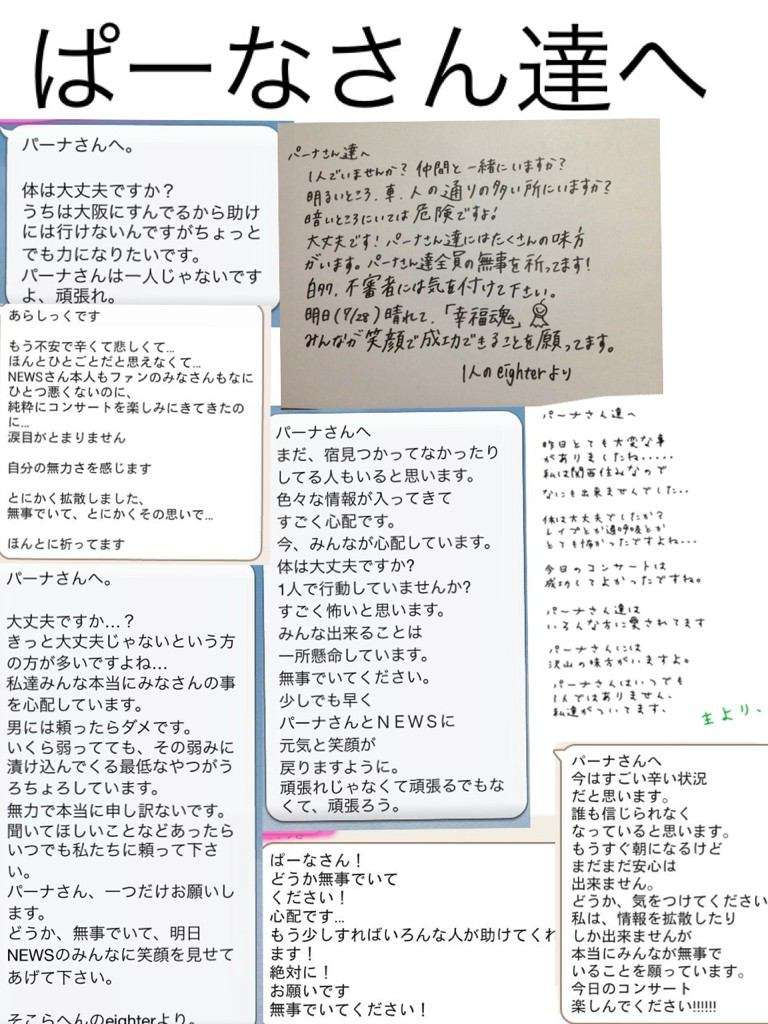 ぱーなさん達へ
パーナさんへ。
体は大丈夫ですか？
うちは大阪にすんでるから助け
には行けないんですがちょっと
でも力になりたいです。
パーナさんは一人じゃないです
よ、頑張れ。
パーナさん達へ
1人でいませんか？仲間と一緒にいますか？
明るいところ、車、人の通りの多い所にいますか？
暗いところにいては危険ですよ！
大丈夫です！パーナさん達にはたくさんの味方
がいます。パーナさん達全員の無事を祈ってます！
不審者には気を付けて下さい。
明日(7/28)晴れて、「幸福魂」
みんなが笑顔で成功できることを願ってます。
1人のeighterより
あらしっくです
もう不安で辛くて悲しくて...
ほんとひとごとだと思えなくて...
NEWSさん本人もファンのみなさんもなに
ひとつ悪くないのに、
純粋にコンサートを楽しみにきてきたの
に...
涙目がとまりません
自分の無力さを感じます
とにかく拡散しました、
無事でいて、とにかくその思いで...
ほんとに祈ってます
パーナさんへ
まだ、宿見つかってなかったり
してる人もいると思います。
色々な情報が入ってきて
すごく心配です。
今、みんなが心配しています。
体は大丈夫ですか?
1人で行動していませんか?
すごく怖いと思います。
みんな出来ることは
一所懸命しています。
無事でいてください。
少しでも早く
パーナさんとＮＥＷＳに
元気と笑顔が
戻りますように。
頑張れじゃなくて頑張るでもな
くて、頑張ろう。
パーナさん達へ
昨日とても大変な事
がありましたね.....
私は関西住みなので
なにも出来ませんでした...
体は大丈夫でしたか？
レイプとか
とても怖かったですよね...
今日のコンサートは
成功してよかったですね。
パーナさん達は
いろんな方に愛されてます
パーナさんには
沢山の味方がいますよ。
パーナさんはいつでも
1人ではありません、
私達がついてます。
主より、
パーナさんへ。
大丈夫ですか...？
きっと大丈夫じゃないという方
の方が多いですよね...
私達みんな本当にみなさんの事
を心配しています。
男には頼ったらダメです。
いくら弱ってても、その弱みに
漬け込んでくる最低なやつがう
ろちょろしています。
無力で本当に申し訳ないです。
聞いてほしいことなどあったら
いつでも私たちに頼って下さ
い。
パーナさん、一つだけお願いし
ます。
どうか、無事でいて、明日
NEWSのみんなに笑顔を見せて
あげて下さい。
そこらへんのeighterより。
ぱーなさん！
どうか無事でいて
ください！
心配です...
もう少しすればいろんな人が助けてくれ
ます！
絶対に！
お願いです
無事でいてください！
パーナさんへ
今はすごい辛い状況
だと思います。
誰も信じられなく
なっていると思います。
もうすぐ朝になるけど
まだまだ安心は
出来ません。
どうか、気をつけてください
私は、情報を拡散したり
しか出来ませんが
本当にみんなが無事で
いることを願っています。
今日のコンサート
楽しんでください!!!!!!